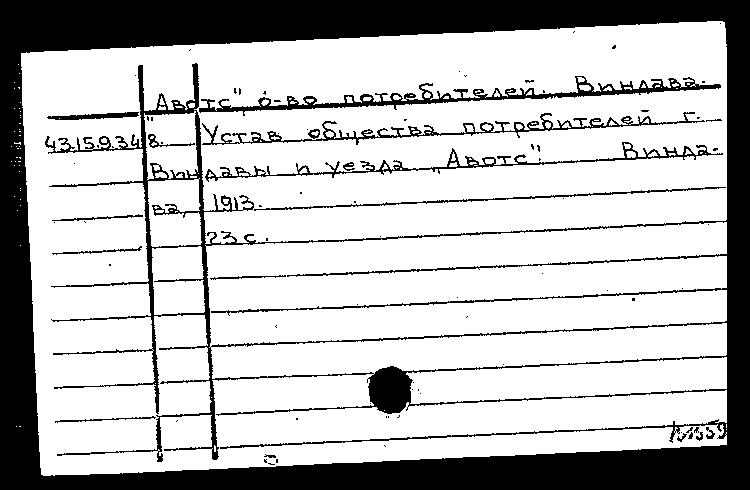 "Авотс", о-во потребителей. Виндава.
43.15.9.348. Устав общества потребителей г.
Виндавы и уезда „Авотс". Винда-
ва, 1913.
23 с.